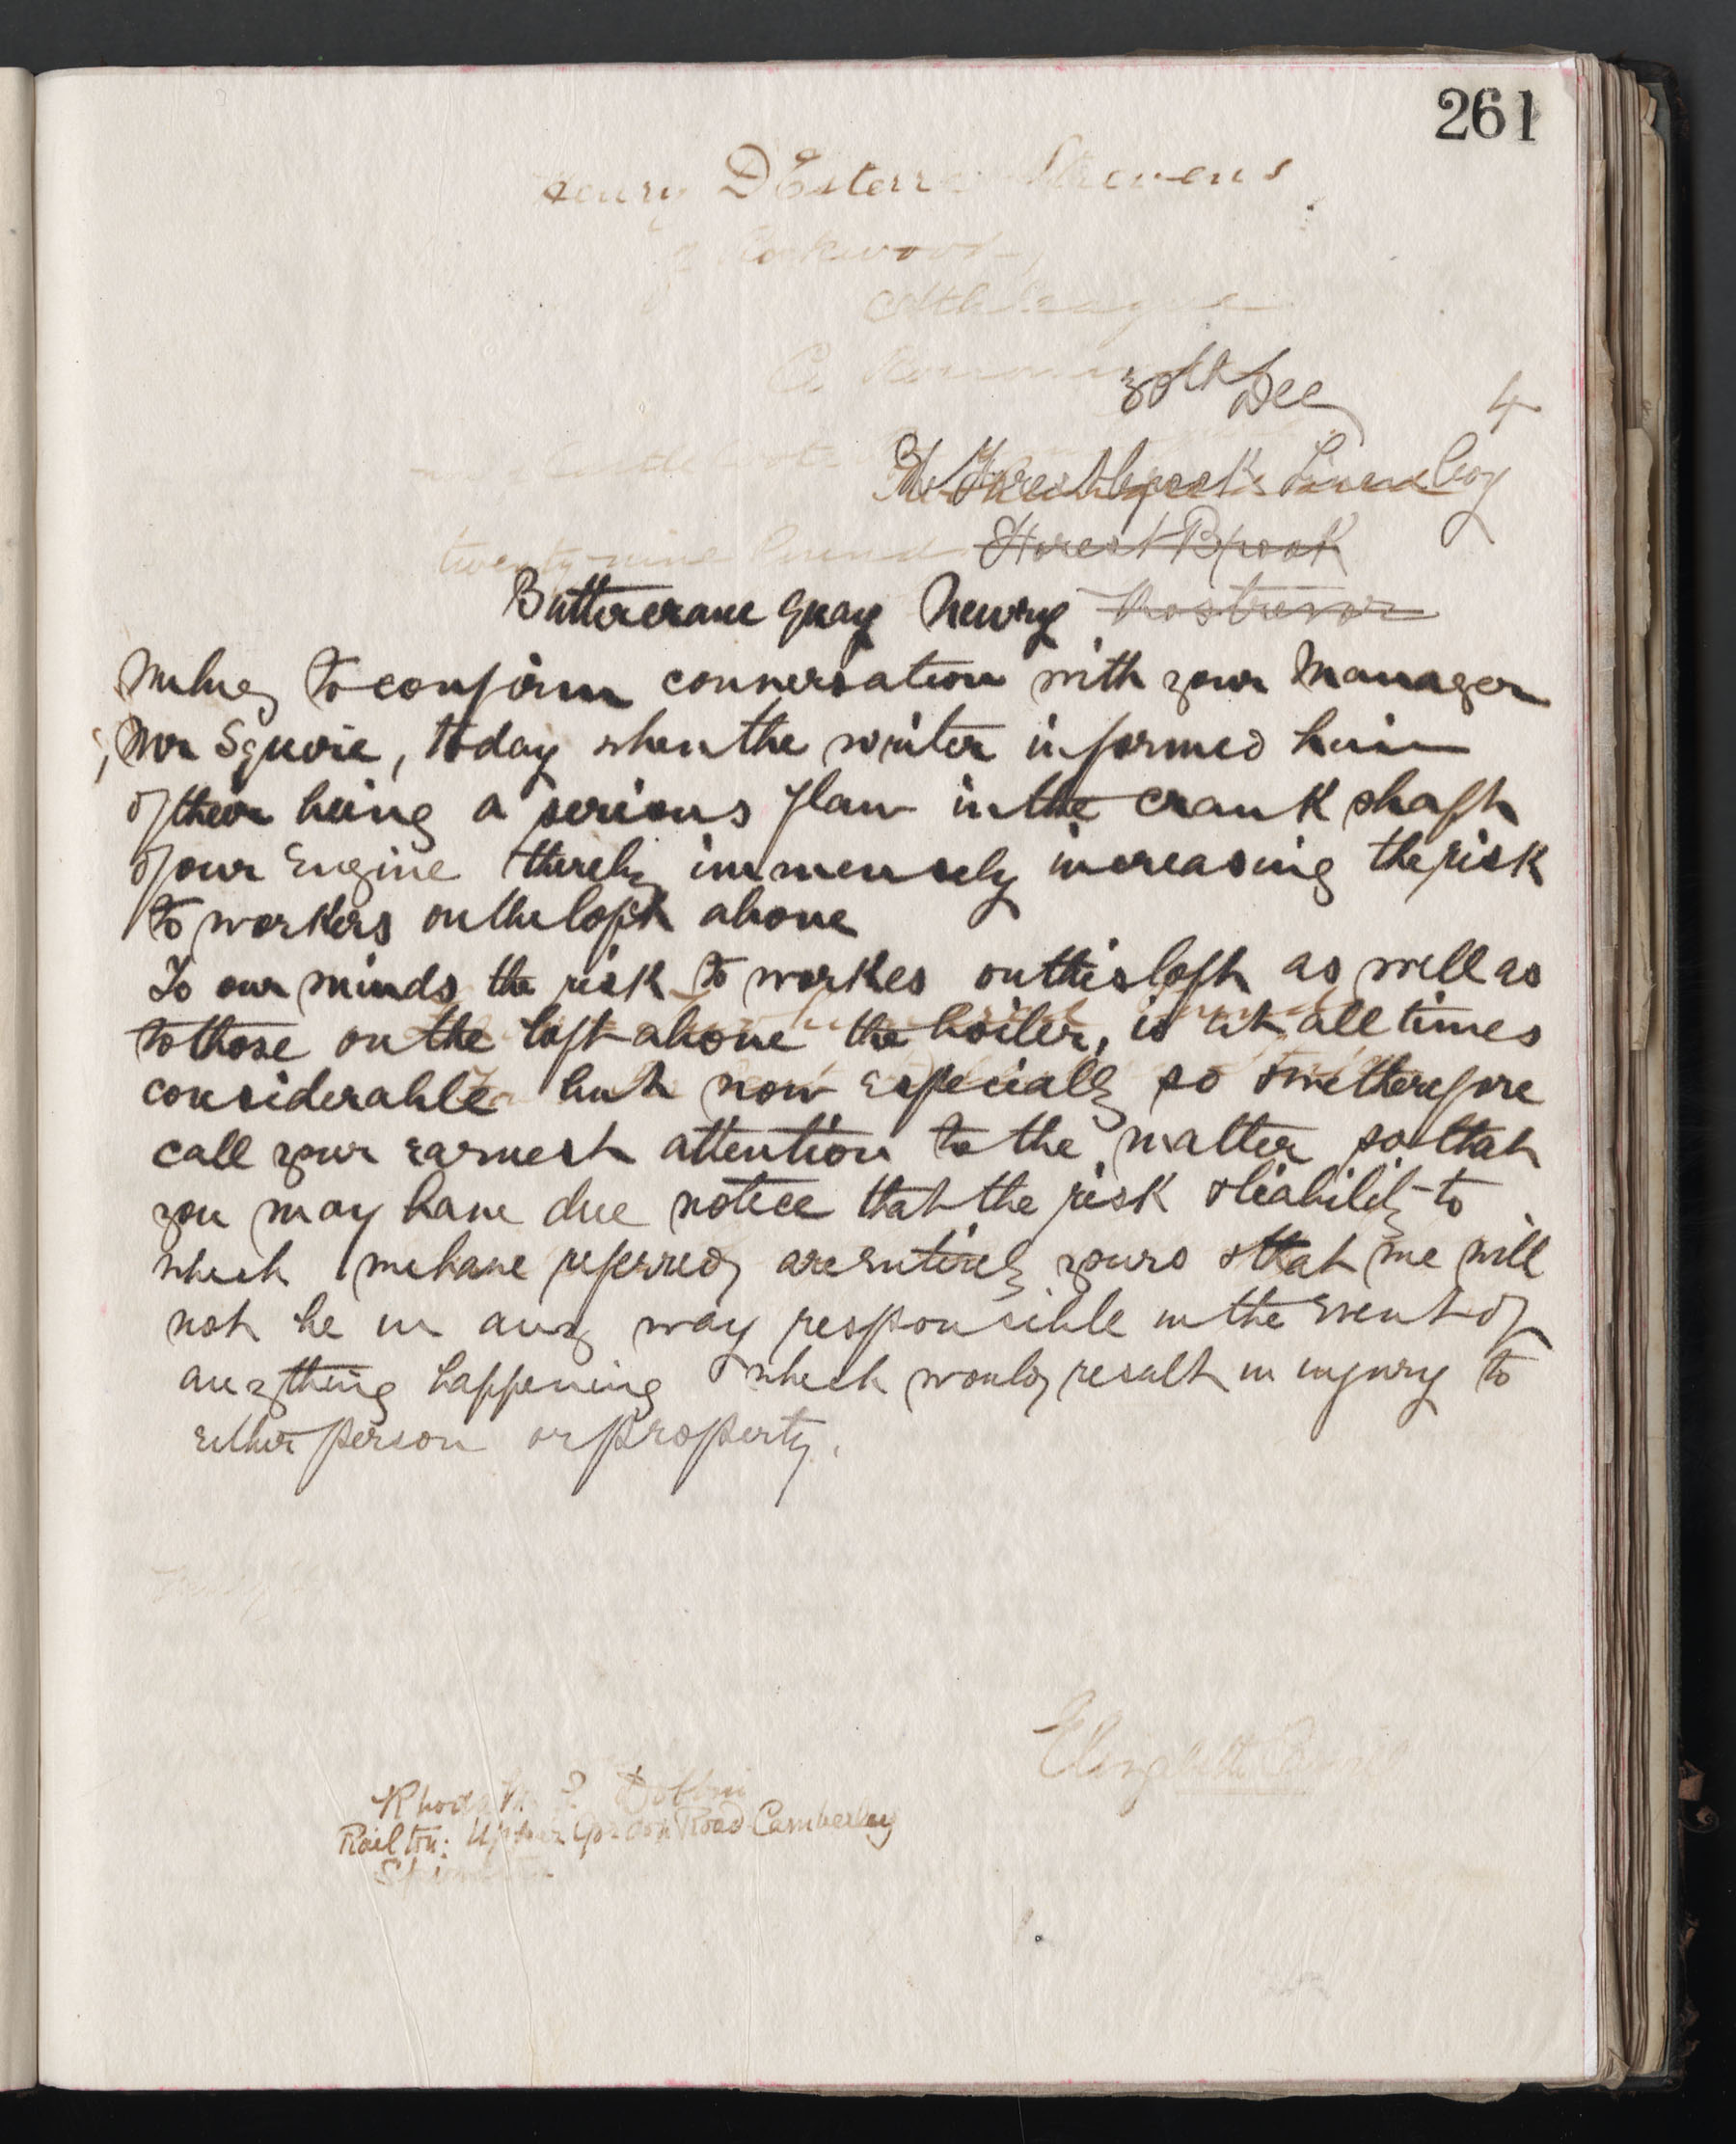 261
Henry D'Esterre Stevens
30th Dec 4
The Forestbrook Linen Coy
Forest Brook
Buttercrane Quay Newry Rostrevor
We beg to confirm conversation with your Manager
Mr Squire, today when the writer informed him
of their being a serious flaw in the crank shaft
of our Engine thereby immensely increasing the risk
to workers on the loft above
To our minds the risk to workes on this loft as well as
to those on the loft above the boiler, is at all times
considerable but now especially so & we therefore
call your earnest attention to the matter so that
you may have due notice that the risk & liability to
which we have referred are entirely yours & that we will
not be in any way responsible in the event of
anything happening which would result in injury to
either person or property.
Railton: Upper Gordon Road Camberley